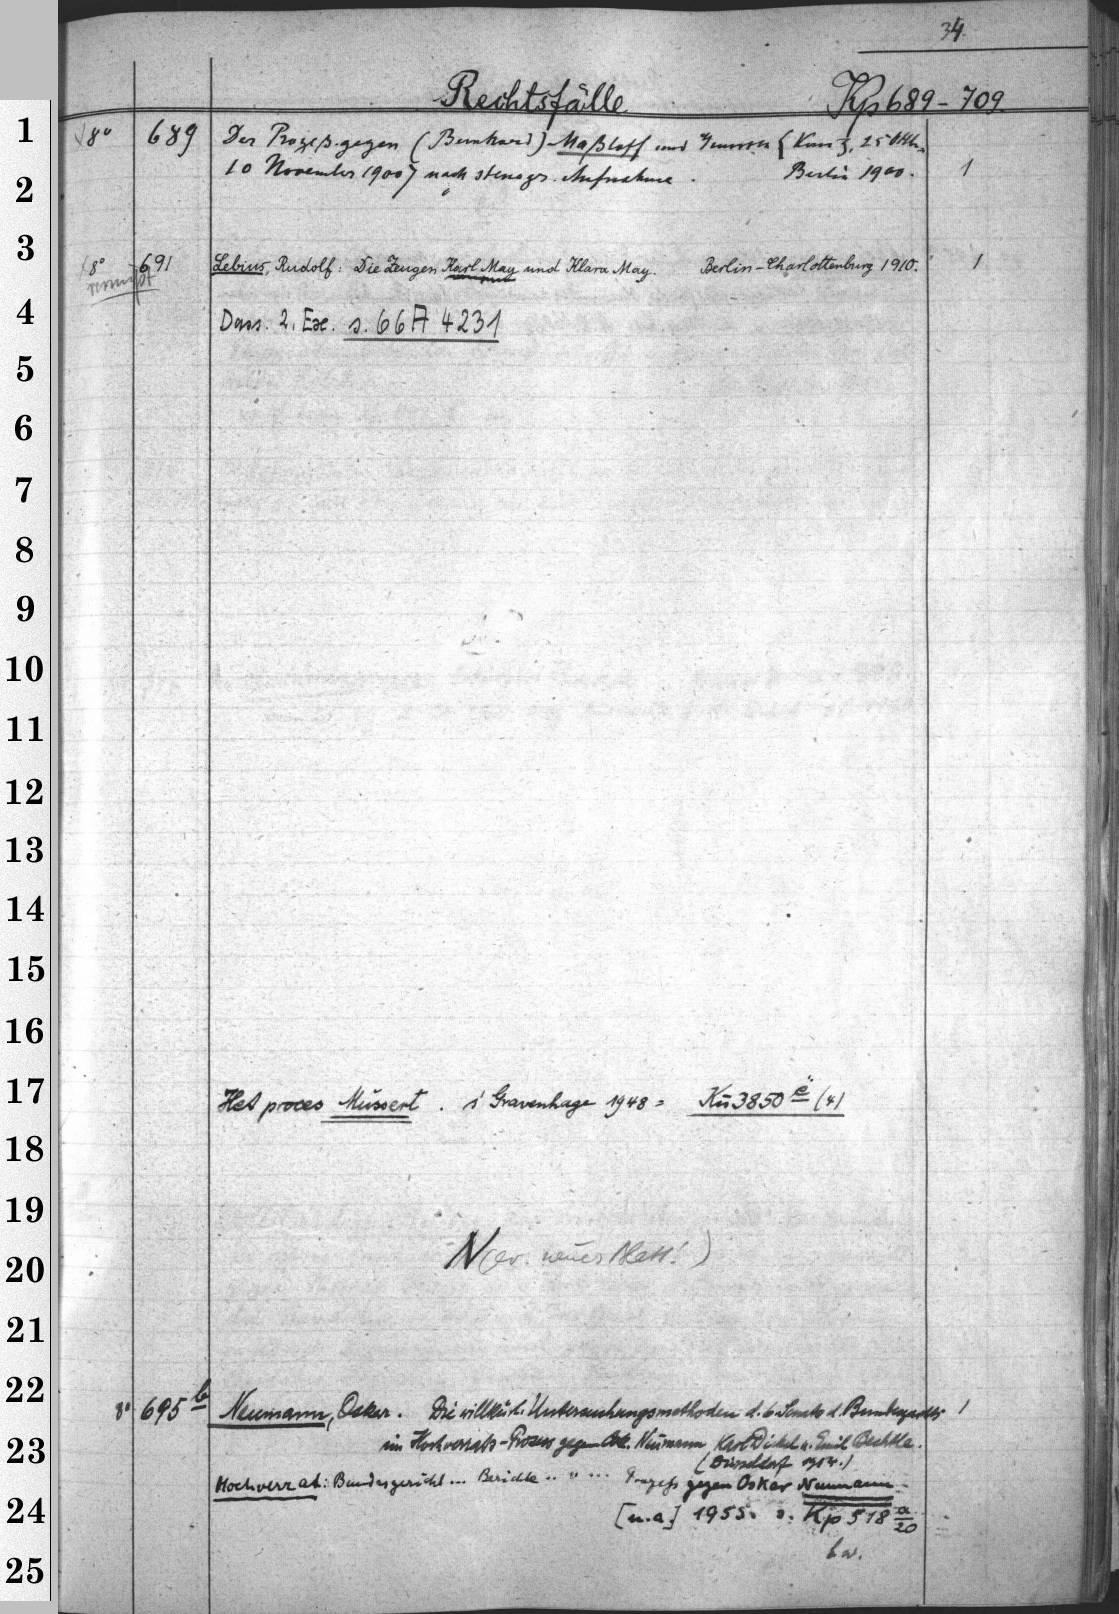 34.
Rechtsfälle Kp 689-709
1
8° 689 Der Prozeß gegen (Bernhard) Maßloff und Genossen {Konitz, 25 Okt.
2
10 November 1900} nach stenogr. Aufnahme. Berlin 1900. 1
3
8° 691 Lebius, Rudolf: Die Zeugen Karl May und Klara May. Berlin-Charlottenburg 1910. 1
vermißt
4
Dass. 2. Ex. s. 66 A 4231
5
6
7
8
9
10
11
12
13
14
15
16
17
Het proces Mussert. s'Gravenhage 1948 = Kü 3850 e (4)
18
19
N (ev. neues Blatt!)
20
21
22
8° 695 b Neumann, Oskar. Die willkürl. Untersuchungsmethoden d. 6. Senats d. Bundesgerichts 1
23
im Hochverrats-Prozess gegen Osk. Neumann, Karl Dickel u. Emil Bechtle.
(Düsseldorf 1954.)
Hochverrat: Bundesgericht... Berichte .. " ... Prozess gegen Oskar Neumann
24
[u.a.] 1955. s. Kp 518 a/20
b.w.
25